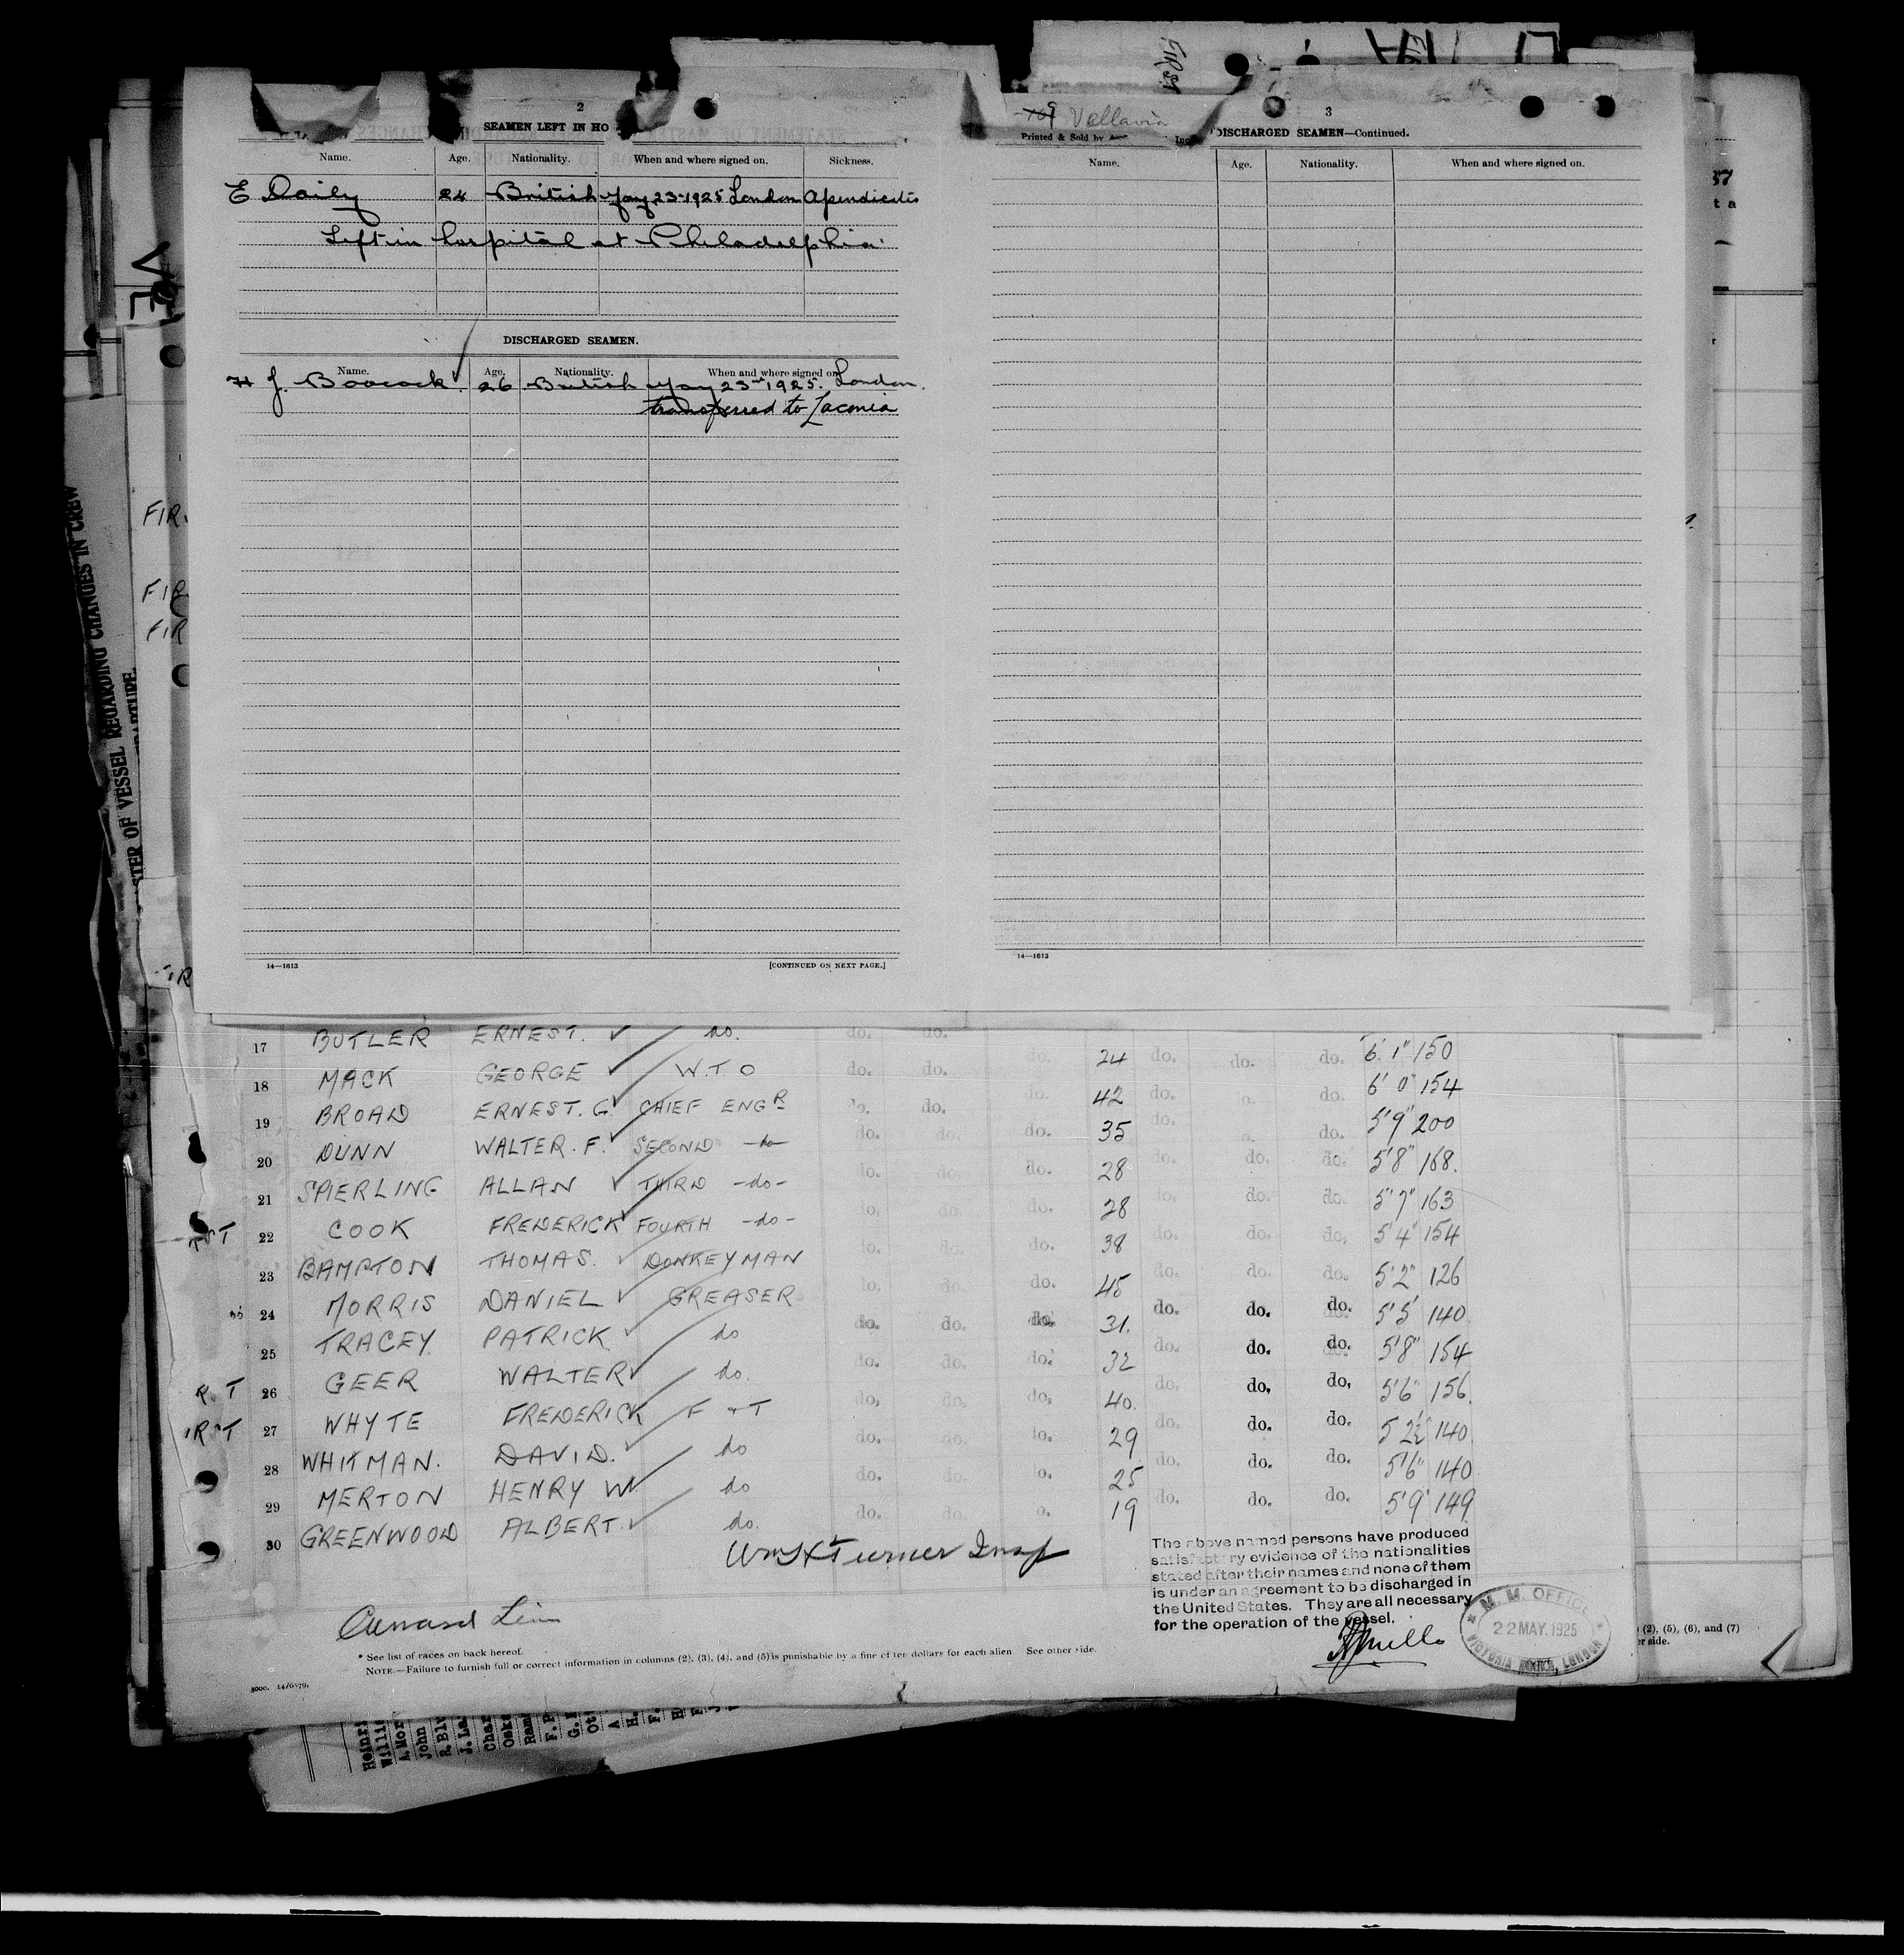 2
SEAMEN LEFT IN HO
Name. Age. Nationality. When and where signed on. Sickness.
E Daily 24 British May 23-1925 London Apendicitis
Left in hospital at Philadelphia.
DISCHARGED SEAMEN.
Name. Age. Nationality. When and where signed on.
H J. Boocock. 26 British May 23rd 1925. London.
transferred to Laconia
14—1613 [CONTINUED ON NEXT PAGE.]
Vellavia
Printed & Sold by
3
DISCHARGED SEAMEN—Continued.
Name. Age. Nationality. When and where signed on.
14—1613
FIRST
STER OF VESSEL REGARDING CHANGES IN CREW
17 BUTLER ERNEST. do. do. do.
18 MACK GEORGE W.T.O do. do. do. 24 do. do. do. 6' 1" 150
19 BROAD ERNEST. G. CHIEF ENGR do. do. do. 42 do. do. 6' 0" 154
20 DUNN WALTER. F. SECOND -do- do. do. do. 35 do. do. 5'9" 200
21 SPIERLING ALLAN THIRD -do- do. do. do. 28 do. do. do. 5'8" 168.
22 COOK FREDERICK FOURTH -do- do. do. do. 28 do. do. do. 5'7" 163
23 BAMPTON THOMAS. DONKEYMAN do. do. do. 38 do. do. do. 5'4" 154
24 MORRIS DANIEL GREASER do. do. do. 45 do. do. do. 5'2" 126
25 TRACEY. PATRICK do do. do. do. 31. do. do. do. 5'5' 140
26 GEER WALTER do. do. do. do. 32 do. do. do. 5'8" 154
27 WHYTE FREDERICK F & T do. do. do. 40. do. do. do. 5'6" 156
28 WHITMAN. DAVID. do do. do. do. 29 do. do. do. 5 2½ 140
29 MERTON HENRY W do do. do. 25 do. do. do. 5'6" 140
30 GREENWOOD ALBERT. do. do. do. 19 do. do. do. 5'9' 149
Wm H Turner Insp
The above named persons have produced
satisfactory evidence of the nationalities
stated after their names and none of them
is under an agreement to be discharged in
the United States. They are all necessary
for the operation of the vessel.
M. M. OFFICE
22 MAY. 1925
VICTORIA DOCKS, LONDON
Cunard Line
* See list of races on back hereof.
NOTE.—Failure to furnish full or correct information in columns (2), (3), (4), and (5) is punishable by a fine of ten dollars for each alien See other side.
(2), (5), (6), and (7)
er side.